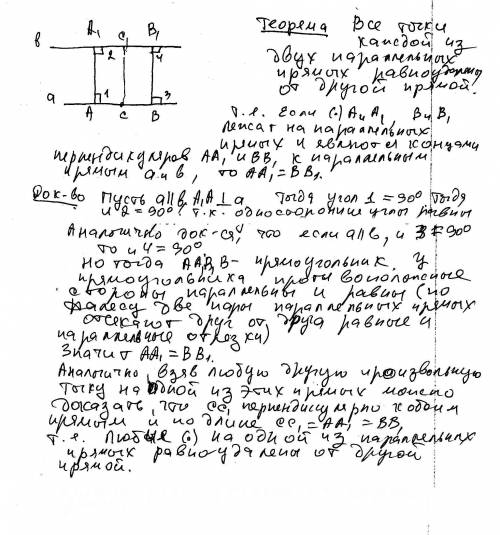 A₁ C₁ B₁
в
2 4
а
1 3
A C B
Теорема Все точки
каждой из
двух параллельных
прямых равноудалены
от другой прямой.
т.е. Если (·) A и A₁ B и B₁
лежат на параллельных
прямых и являются концами
перпендикуляров AA₁ и BB₁ к параллельным
прямым а и в, то AA₁ = BB₁.
Док-во Пусть а||в A₁A⊥а Тогда угол 1 = 90° тогда
и 2 = 90° т.к. односторонние углы равны
Аналогично док-ся, что если а||в, и 3 = 90°
то и 4 = 90°
Но тогда AA₁B₁B- прямоугольник. У
прямоугольника противоположные
стороны параллельны и равны (по
Фалесу две пары параллельных прямых
отсекают друг от друга равные и
параллельные отрезки)
Значит AA₁ = BB₁.
Аналогично, взяв любую другую произвольную
точку на одной из этих прямых можно
доказать, что CC₁ перпендикулярно к обоим
прямым и по длине CC₁ = AA₁ = BB₁
т.е. Любые (·) на одной из параллельных
прямых равноудалены от другой
прямой.